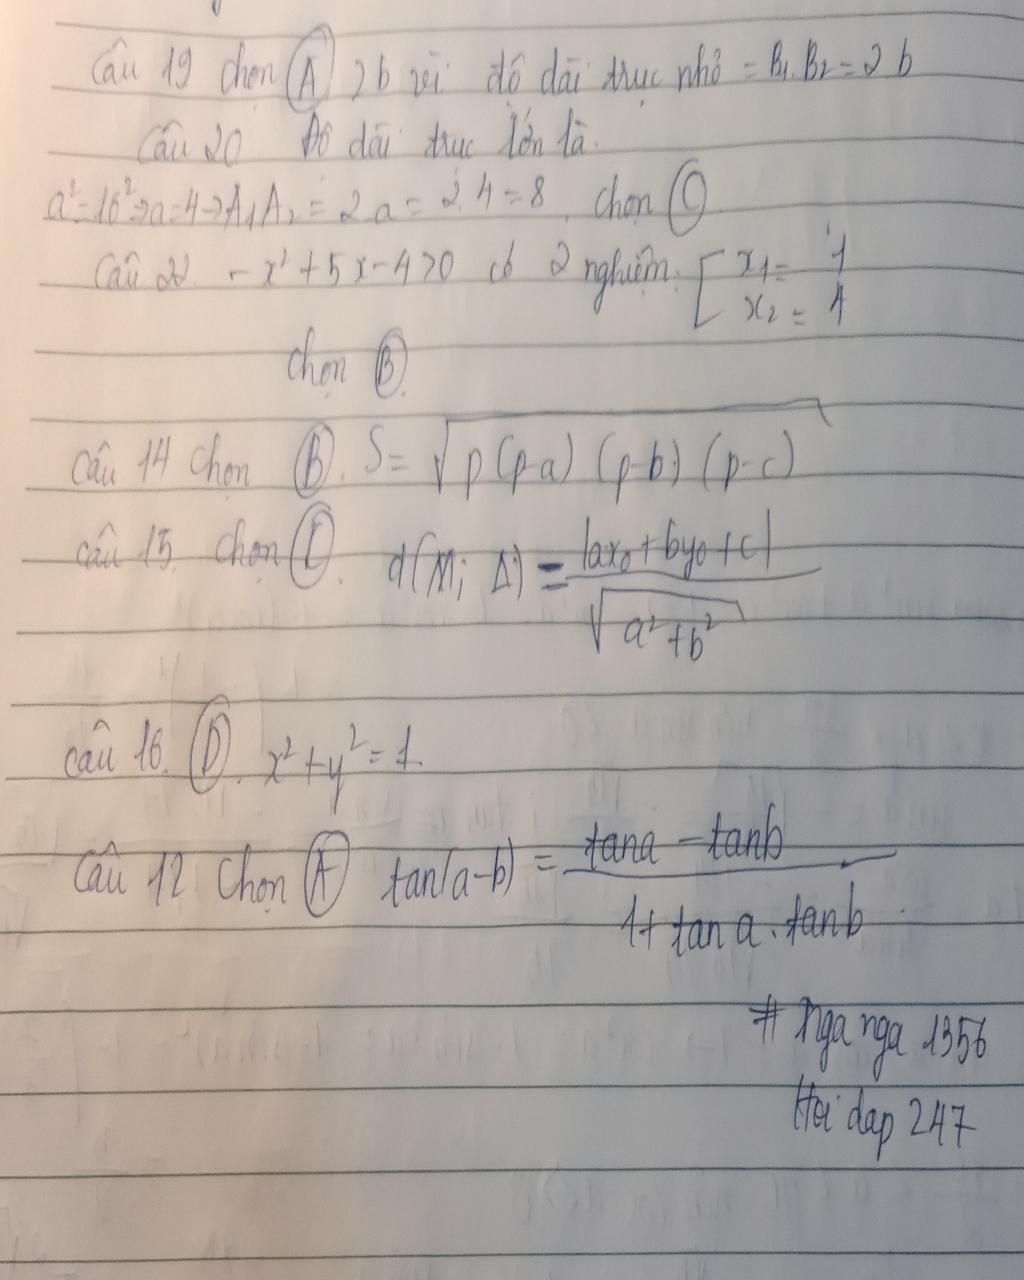 Câu 19 chọn A 2b vì độ dài trục nhỏ = B₁B₂ = 2b
Câu 20 Độ dài trục lớn là
a² = 16² => a = 4 => A₁A₂ = 2a = 2.4 = 8. chọn C
Câu 22. -x² + 5x - 4 > 0 có 2 nghiệm. [ x₁ = 1
x₂ = 4
chọn B.
Câu 14 chọn B. S = √p(p-a)(p-b)(p-c)
câu 15. chọn C. d(M; Δ) = |ax₀ + by₀ + c|
√a² + b²
câu 16. D. x² + y² = 1.
Câu 12 Chọn A tan(a-b) = tana - tanb
1 + tan a . tan b
# Nga nga 1356
Hoi dap 247